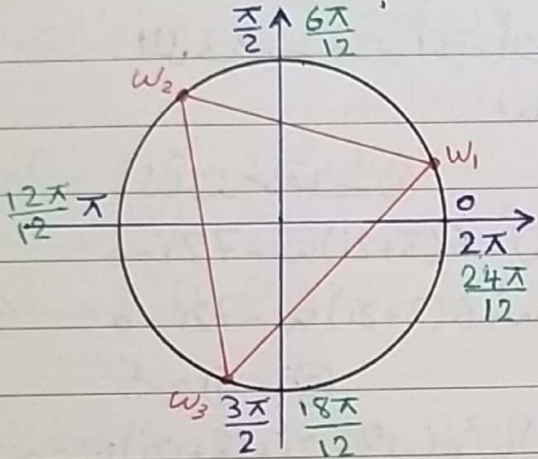 π/2 6π/12
W₂
W₁
12π/12 π
0
2π
24π/12
W₃ 3π/2 18π/12